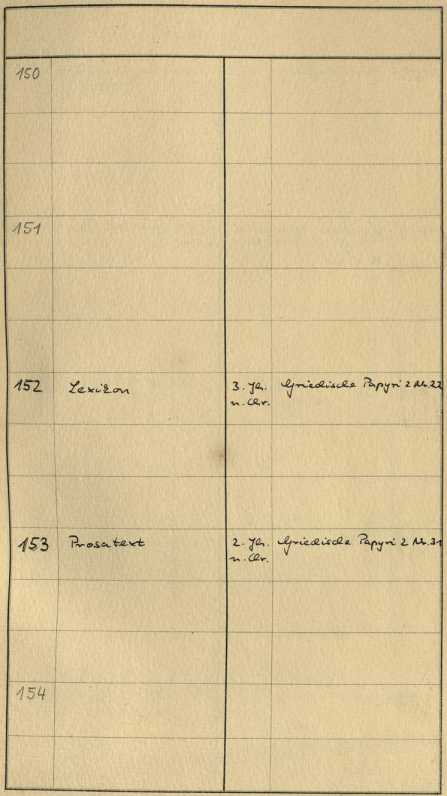 150
151
152 Lexikon 3. Jh. Griechische Papyri 2 Nr. 22
n. Chr.
153 Prosatext 2. Jh. Griechische Papyri 2 Nr. 31
n. Chr.
154